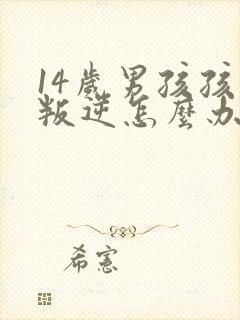 14歲男孩孩
叛逆怎麼办
希憲